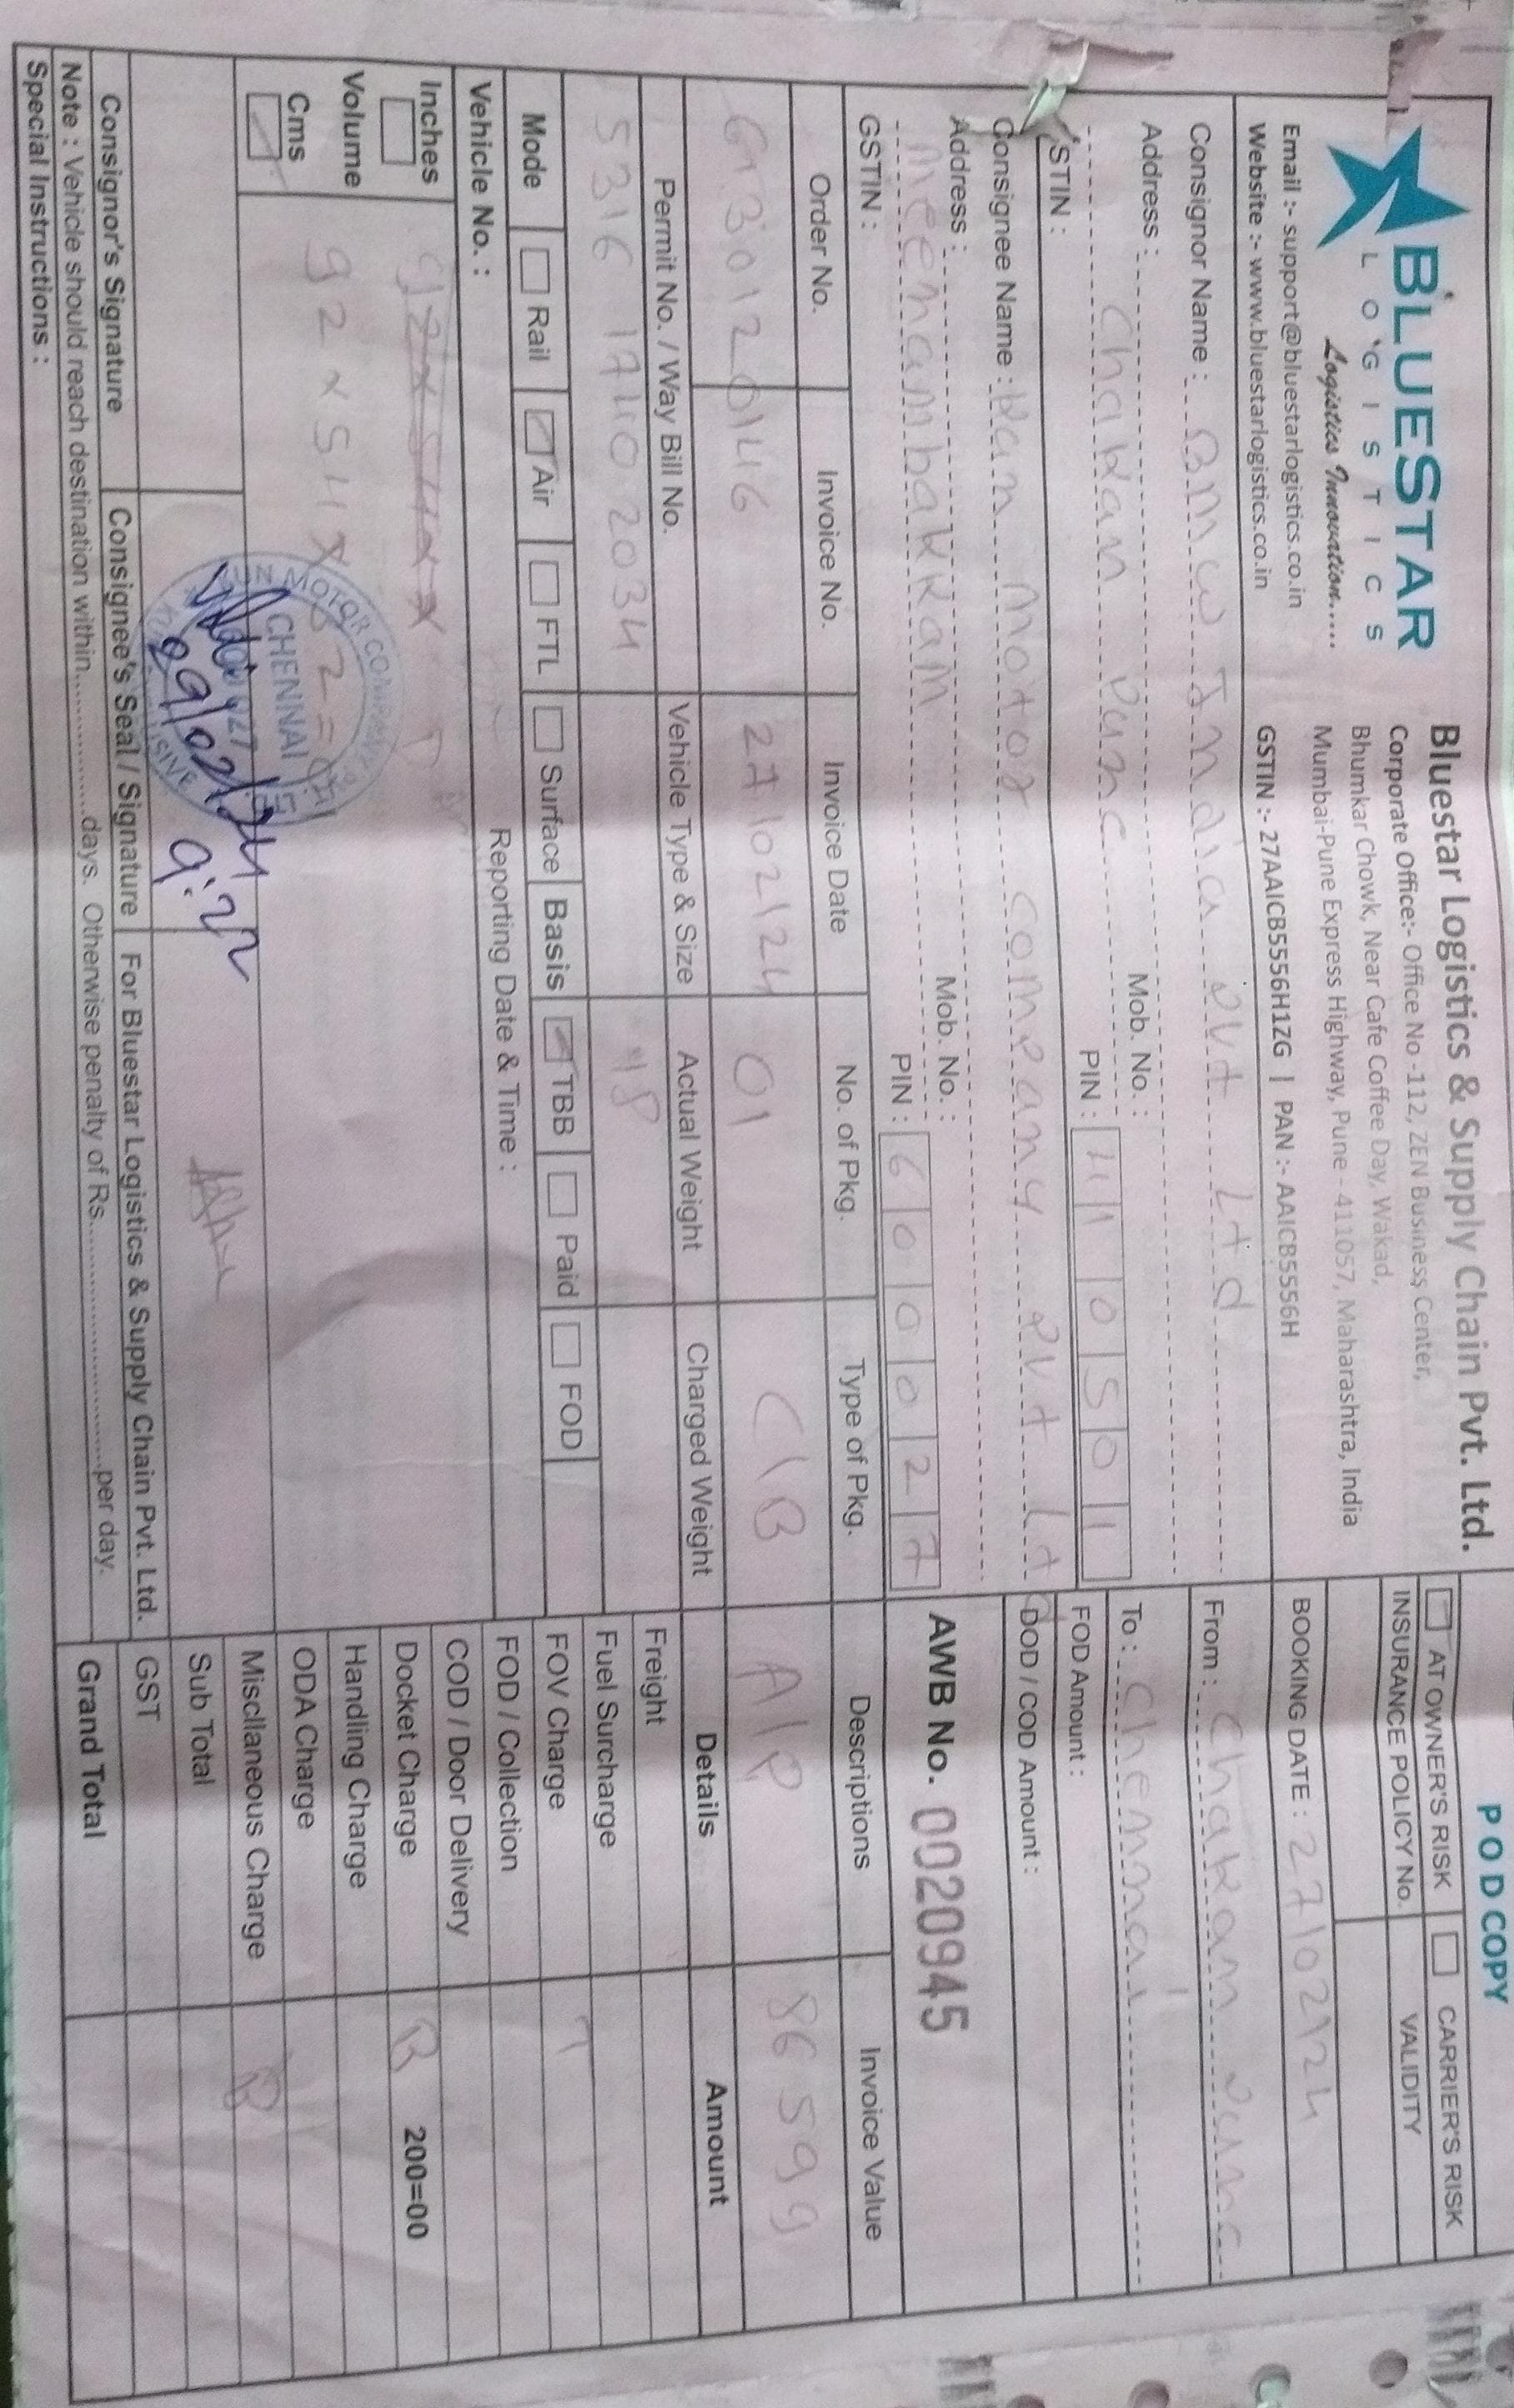 BLUESTAR
LOGISTICS
Logistics Innovation.....
Email :- support@bluestarlogistics.co.in
Website :- www.bluestarlogistics.co.in
Bluestar Logistics & Supply Chain Pvt. Ltd.
Corporate Office:- Office No -112, ZEN Business Center,
Bhumkar Chowk, Near Cafe Coffee Day, Wakad,
Mumbai-Pune Express Highway, Pune - 411057, Maharashtra, India
GSTIN :- 27AAICB5556H1ZG | PAN :- AAICB5556H
POD COPY
AT OWNER'S RISK CARRIER'S RISK
INSURANCE POLICY No. VALIDITY
BOOKING DATE : 27/02/24
Consignor Name : BMW India Pvt Ltd
Address :
Chakan Pune
Mob. No. :
PIN : 410501
STIN :
From : Chakan Pune
To : Chennai
FOD Amount :
DOD / COD Amount :
Consignee Name : Kun Motor Company Pvt Ltd
Address :
Meenambakkam
Mob. No. :
PIN : 600027
GSTIN :
AWB No. 0020945
Order No. Invoice No. Invoice Date No. of Pkg. Type of Pkg. Descriptions Invoice Value
27/02/24 01 C/B A/P 86599
Permit No. / Way Bill No. Vehicle Type & Size Actual Weight Charged Weight Details Amount
5316 1740 2034 18
Freight
Fuel Surcharge
FOV Charge
FOD / Collection
COD / Door Delivery
Docket Charge 200=00
Handling Charge
ODA Charge
Miscllaneous Charge
Sub Total
GST
Grand Total
Mode Rail Air FTL Surface Basis TBB Paid FOD
Vehicle No. : Reporting Date & Time :
Inches
Volume
Cms
92x54x
KUN MOTOR COMPANY PVT. LTD
CHENNAI
29/02/24
9:22
Consignor's Signature Consignee's Seal / Signature For Bluestar Logistics & Supply Chain Pvt. Ltd.
Note : Vehicle should reach destination within.................days. Otherwise penalty of Rs..............................per day.
Special Instructions :